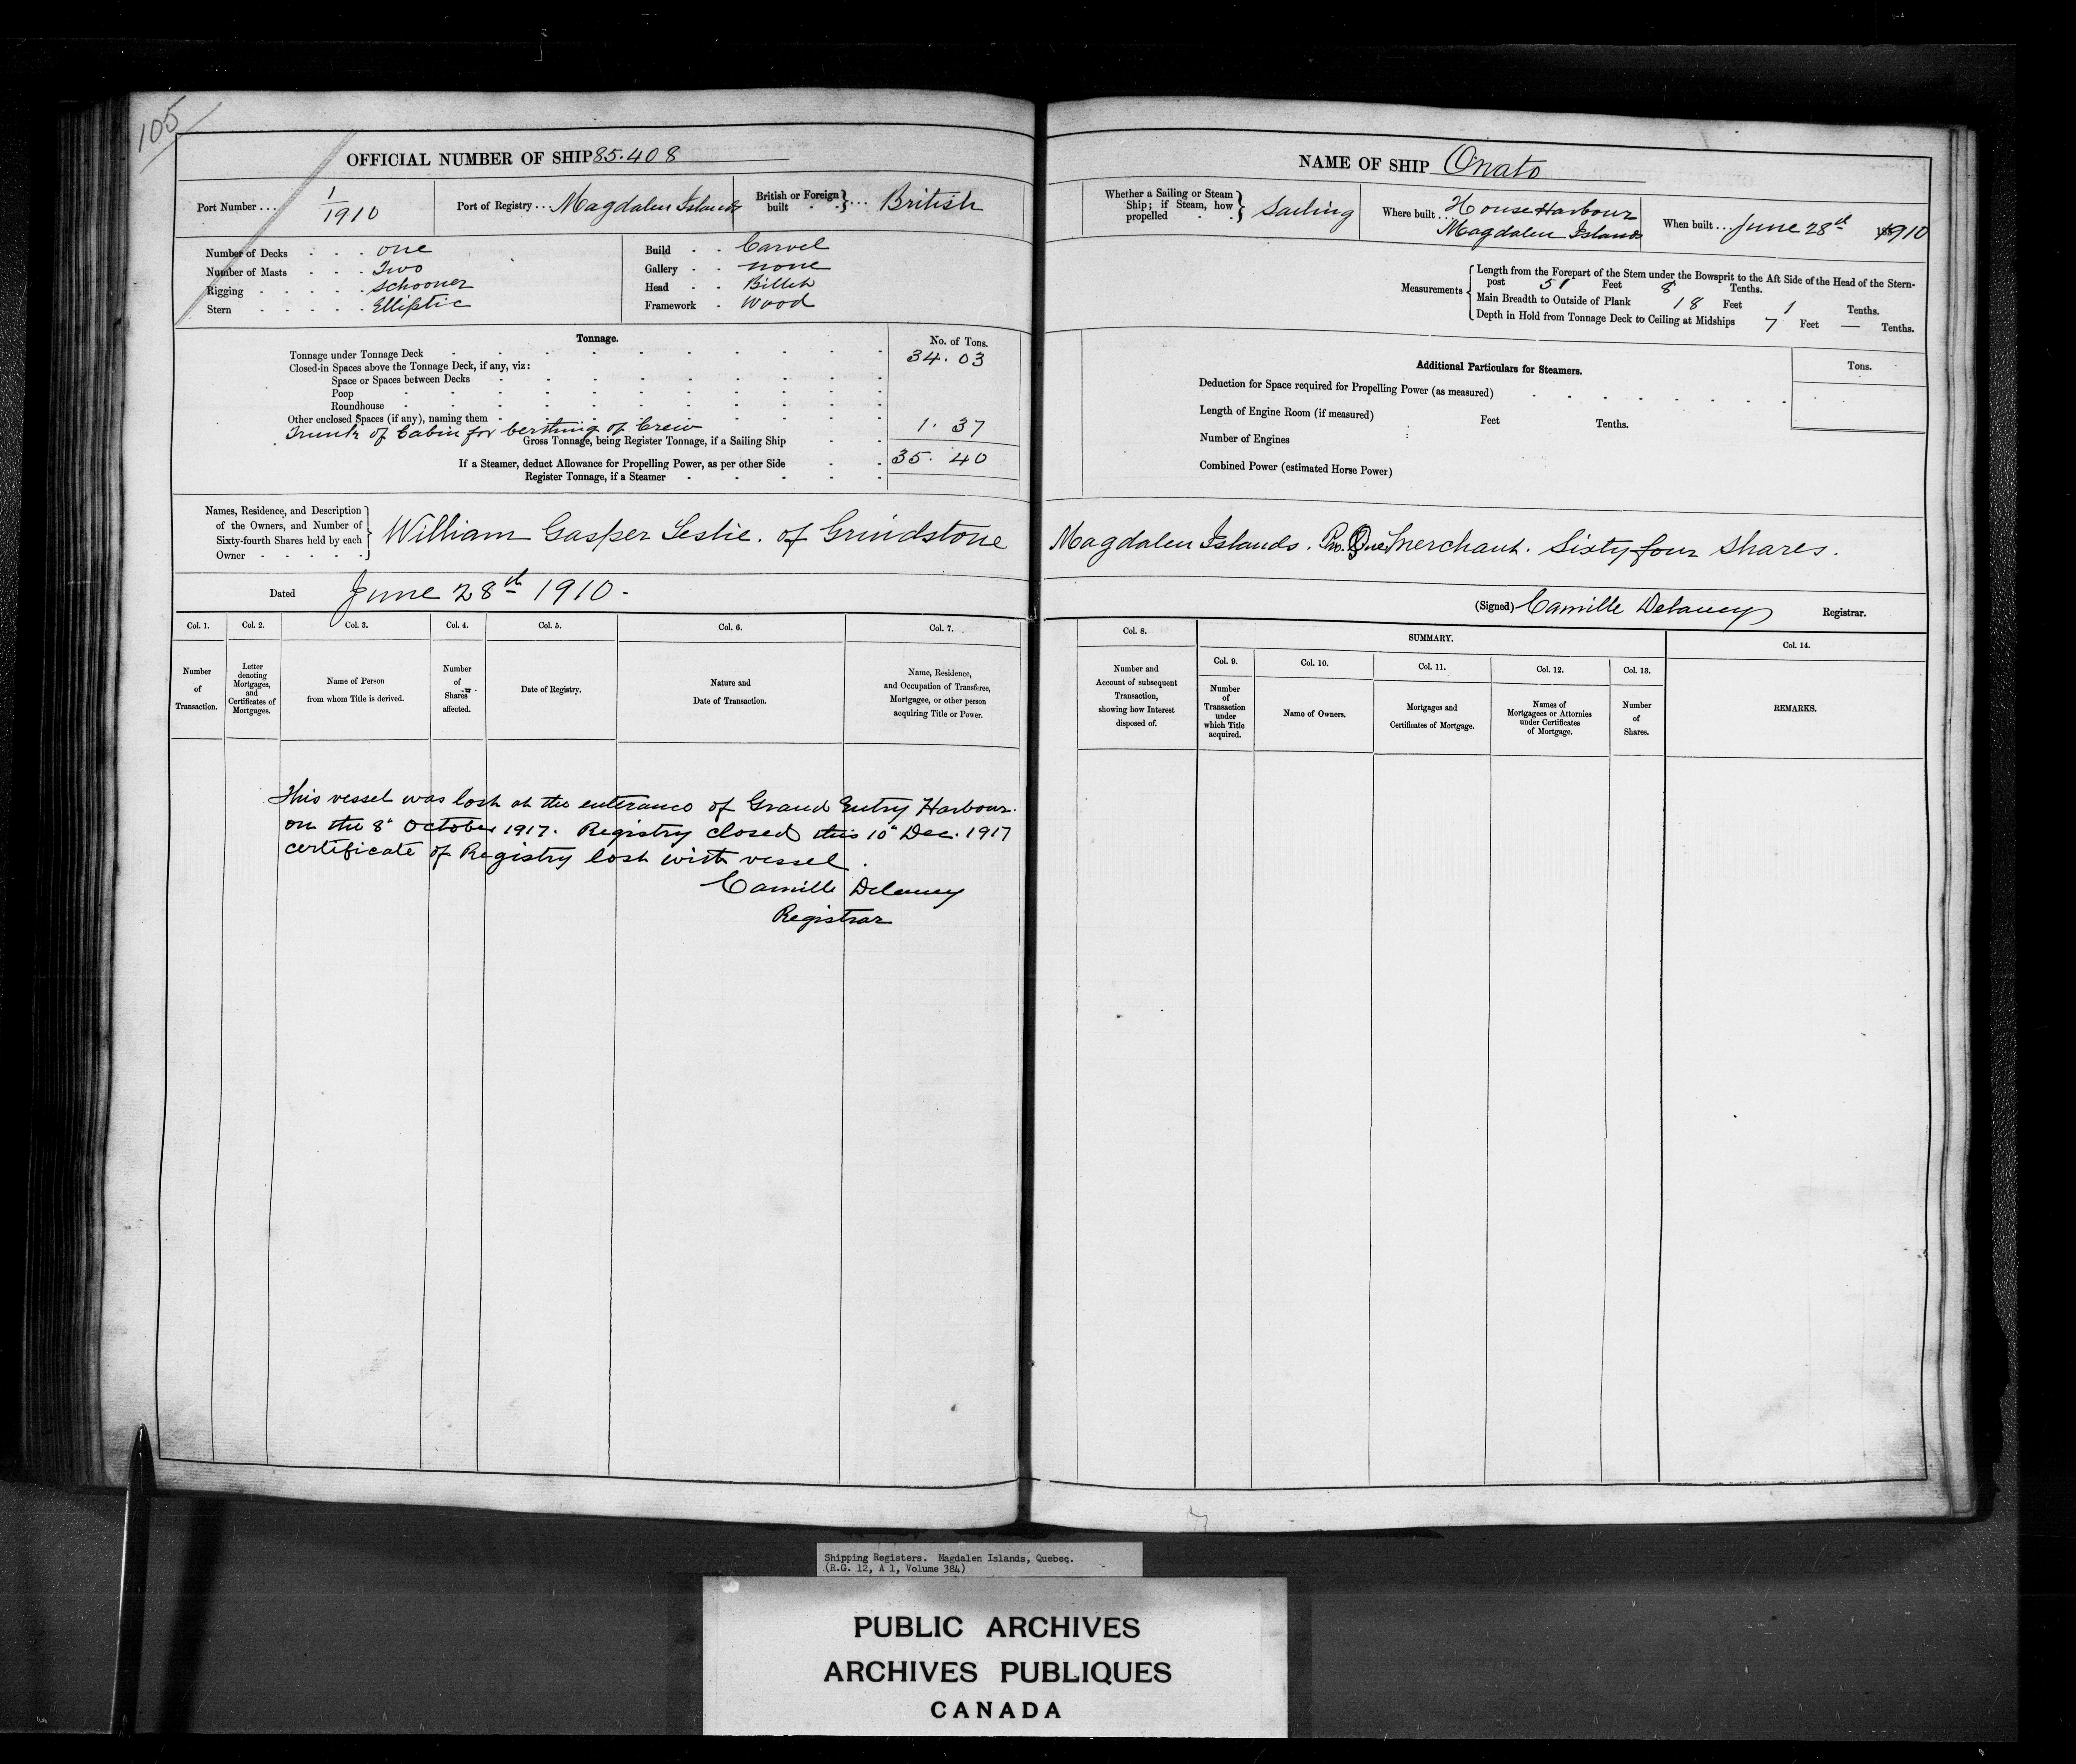 105
OFFICIAL NUMBER OF SHIP 85.408
Port Number ... 1/1910
Port of Registry ... Magdalen Islands
British or Foreign built } ... British
Number of Decks . . . one
Number of Masts . . . Two
Rigging . . . . . schooner
Stern . . . . . Elliptic
Build . . Carvel
Gallery . . none
Head . . Billet
Framework . Wood
Tonnage.
No. of Tons.
Tonnage under Tonnage Deck 34.03
Closed-in Spaces above the Tonnage Deck, if any, viz:
Space or Spaces between Decks
Poop
Roundhouse
Other enclosed Spaces (if any), naming them
Trunk of Cabin for berthing of Crew 1.37
Gross Tonnage, being Register Tonnage, if a Sailing Ship
If a Steamer, deduct Allowance for Propelling Power, as per other Side 35.40
Register Tonnage, if a Steamer
Names, Residence, and Description
of the Owners, and Number of
Sixty-fourth Shares held by each
Owner
William Gasper Leslie. of Grindstone
Dated June 28th 1910.
Col. 1. Col. 2. Col. 3. Col. 4. Col. 5. Col. 6. Col. 7.
Number of Transaction.
Letter denoting Mortgages, and Certificates of Mortgages.
Name of Person from whom Title is derived.
Number of Shares affected.
Date of Registry.
Nature and Date of Transaction.
Name, Residence, and Occupation of Transferee, Mortgagee, or other person acquiring Title or Power.
This vessel was lost at the enterance of Grand Entry Harbour.
on the 8" October 1917. Registry closed this 10" Dec. 1917
certificate of Registry lost with vessel.
Camille Delaney
Registrar
NAME OF SHIP Onato
Whether a Sailing or Steam Ship; if Steam, how propelled } Sailing
Where built ... House Harbour
Magdalen Islands
When built ... June 28th 1910
Measurements
Length from the Forepart of the Stem under the Bowsprit to the Aft Side of the Head of the Stern-
post 51 Feet 8 Tenths.
Main Breadth to Outside of Plank 18 Feet 1 Tenths.
Depth in Hold from Tonnage Deck to Ceiling at Midships 7 Feet — Tenths.
Additional Particulars for Steamers.
Tons.
Deduction for Space required for Propelling Power (as measured)
Length of Engine Room (if measured) Feet Tenths.
Number of Engines
Combined Power (estimated Horse Power)
Magdalen Islands. Pro. Que Merchant. Sixty four shares.
(Signed) Camille Delaney Registrar.
Col. 8.
SUMMARY.
Col. 9. Col. 10. Col. 11. Col. 12. Col. 13.
Col. 14.
Number and Account of subsequent Transaction, showing how Interest disposed of.
Number of Transaction under which Title acquired.
Name of Owners.
Mortgages and Certificates of Mortgage.
Names of Mortgagees or Attornies under Certificates of Mortgage.
Number of Shares.
REMARKS.
Shipping Registers. Magdalen Islands, Quebec.
(R.G. 12, A 1, Volume 384)
PUBLIC ARCHIVES
ARCHIVES PUBLIQUES
CANADA